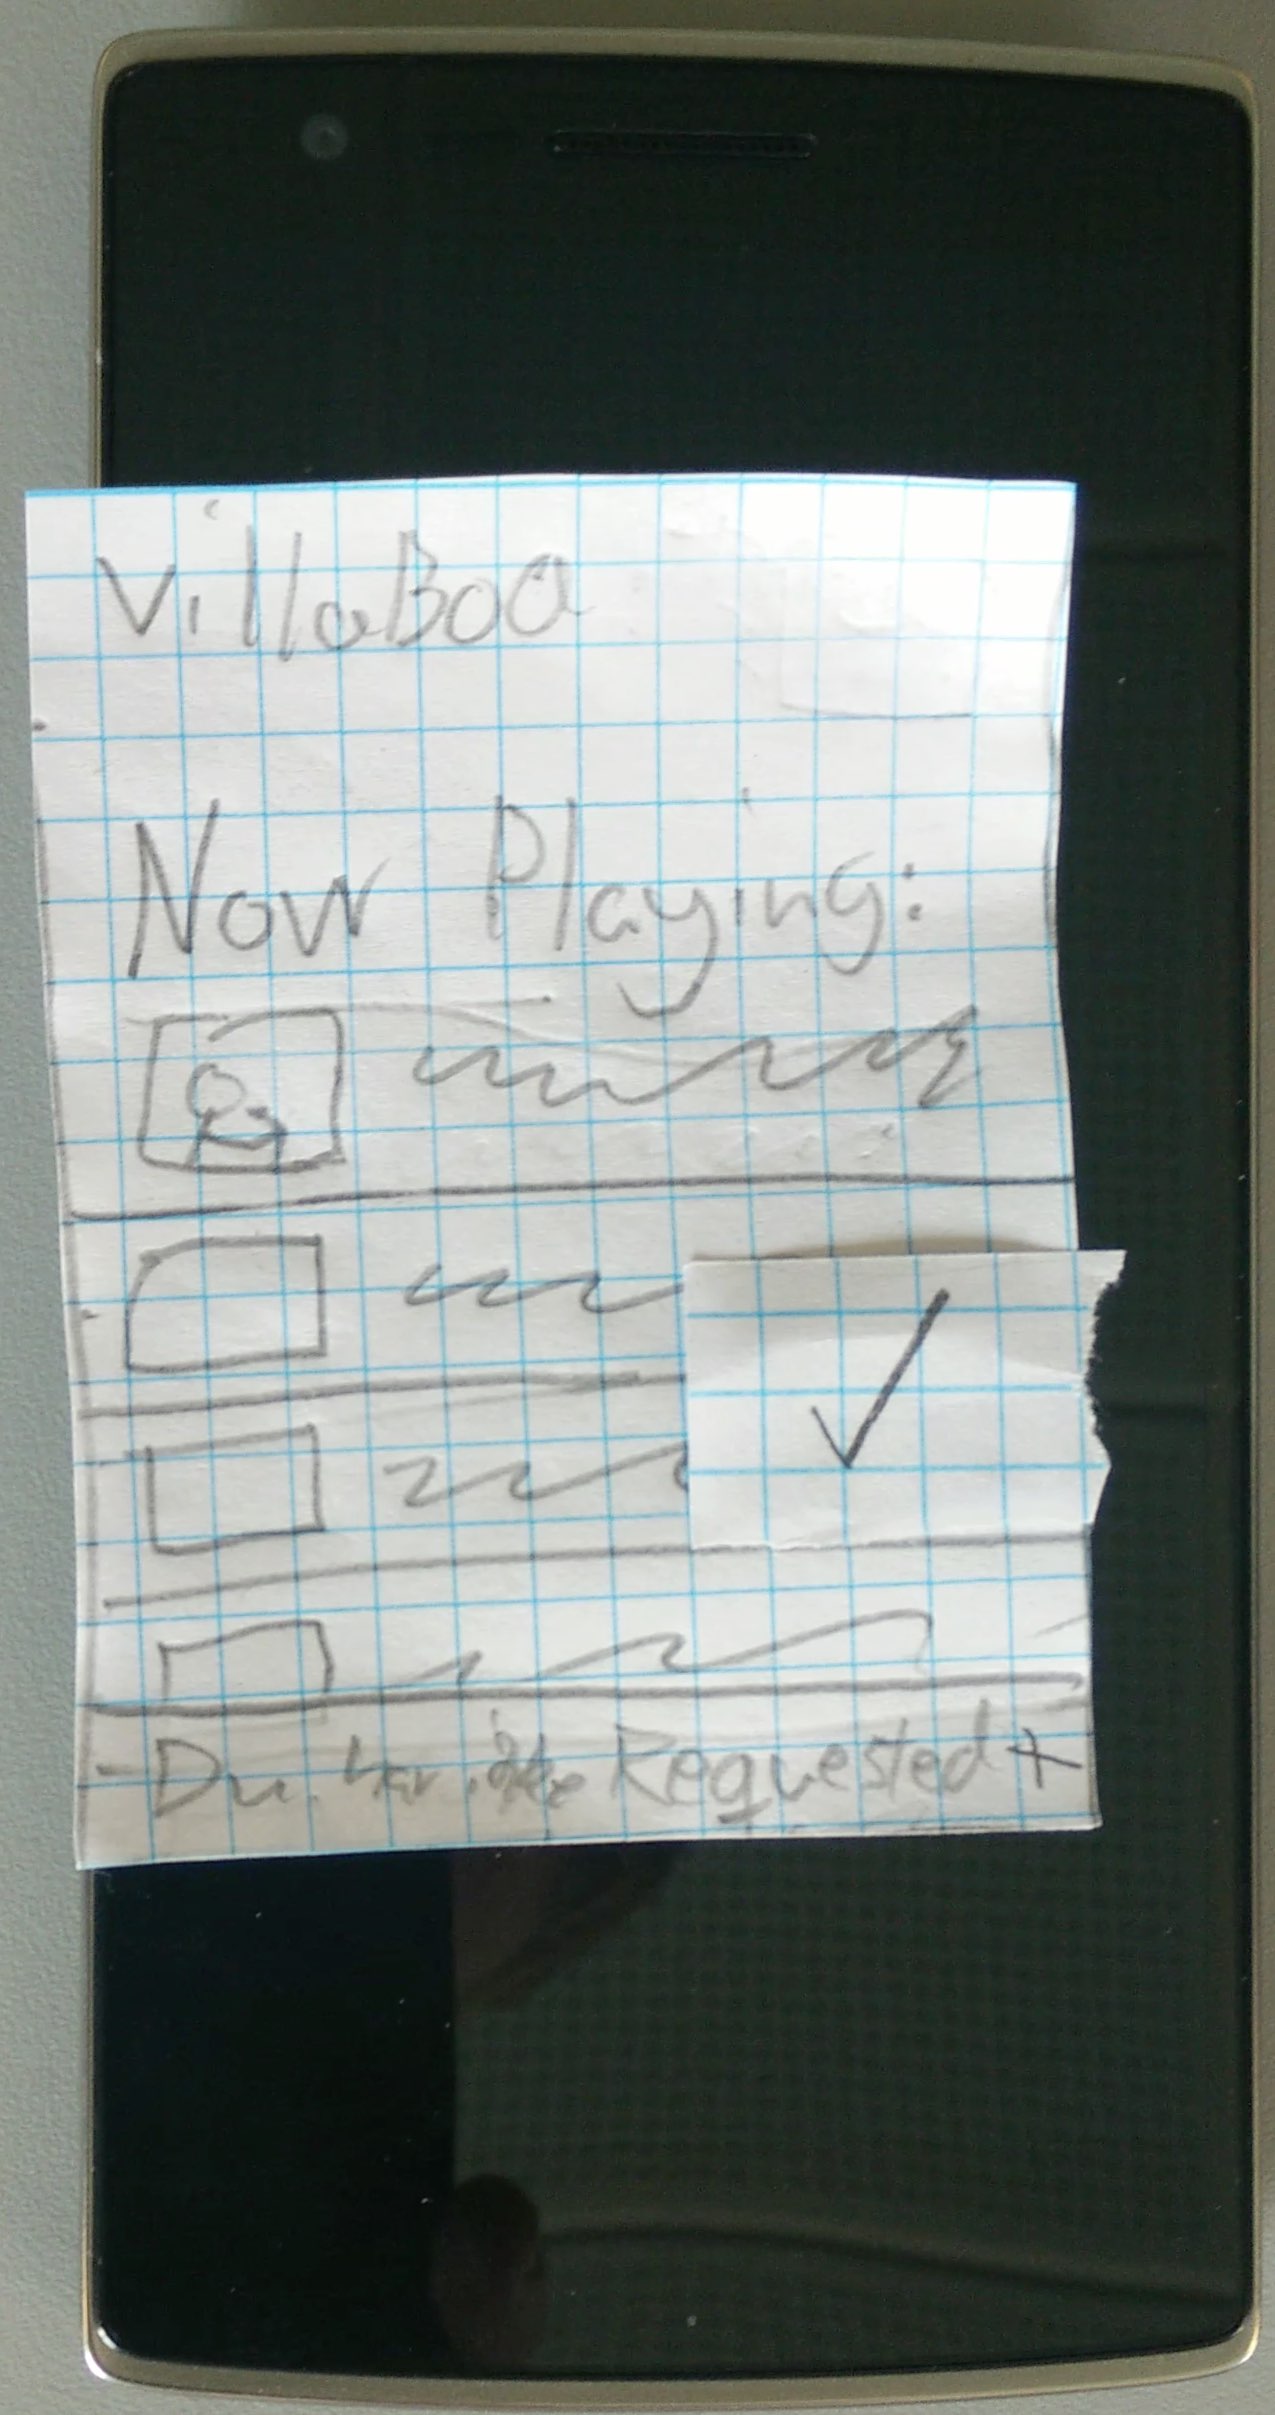 VillaBoa
Now Playing:
✓
Du har ikke Requested +